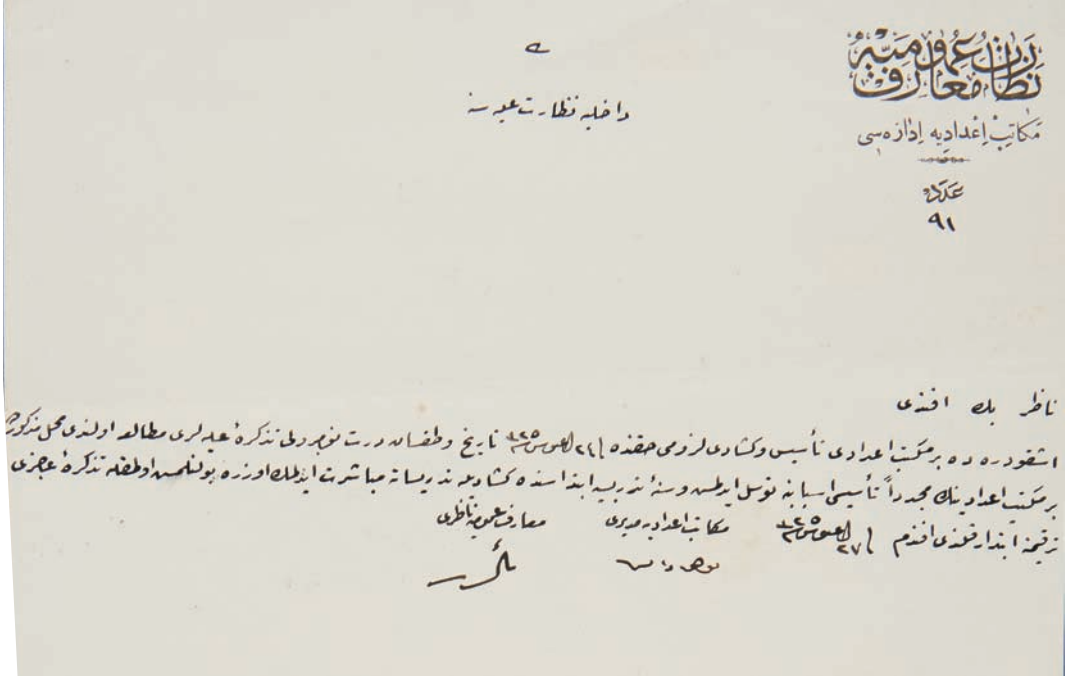 نظارت معارف عمومیه
مكاتب اعدادیه اداره سی
عدد
٩١
داخلیه نظارت علیه سنه
ناظر بك افندی
اشقودره ده بر مكتب اعدادی تأسیس وكشادی لزومی حقنده ٢٤ اغستوس ٣٢٥ تاریخ وطقسان درت نومرولی تذكرۀ علیه لری مطالعه اولندی محل مذكورده
بر مكتب اعدادینك مجدداً تأسیسی اسبابنه توسل ایدلمش وسنۀ تدریسیه ابتداسنده كشادیله تدریساته مباشرت ایدلمك اوزره بولنلمش اولمغله تذكرۀ عاجزی
ترقیمنه ابتدار قلندی افندم ٢٧ اغستوس ٣٢٥
مكاتب اعدادیه مدیری
معارف عمومیه ناظری